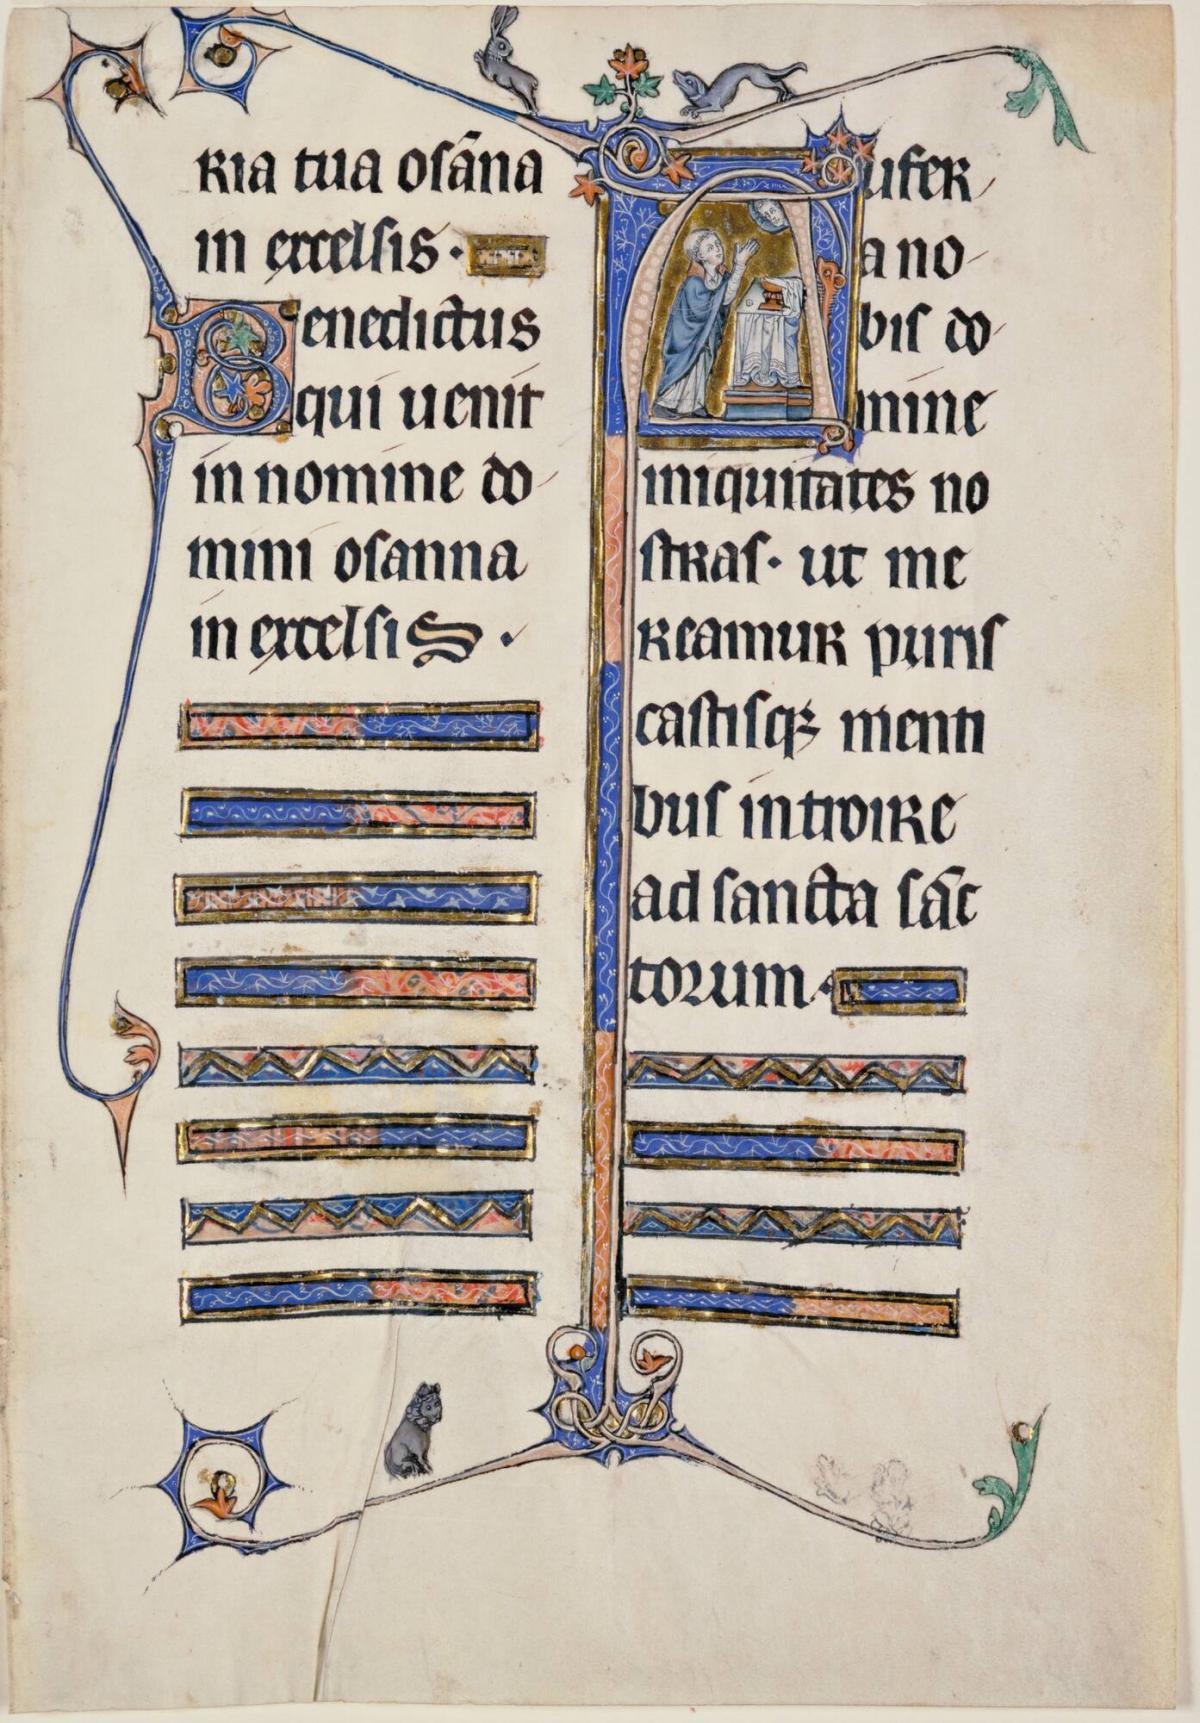 ria tua osāna
in excelsis·
Benedictus
qui uenit
in nomine do
mini osanna
in excelsis·
Aufer
a no
bis do
mine
iniquitates no
stras· ut me
reamur puris
castisqꝫ menti
bus introire
ad sancta sāc
torum·